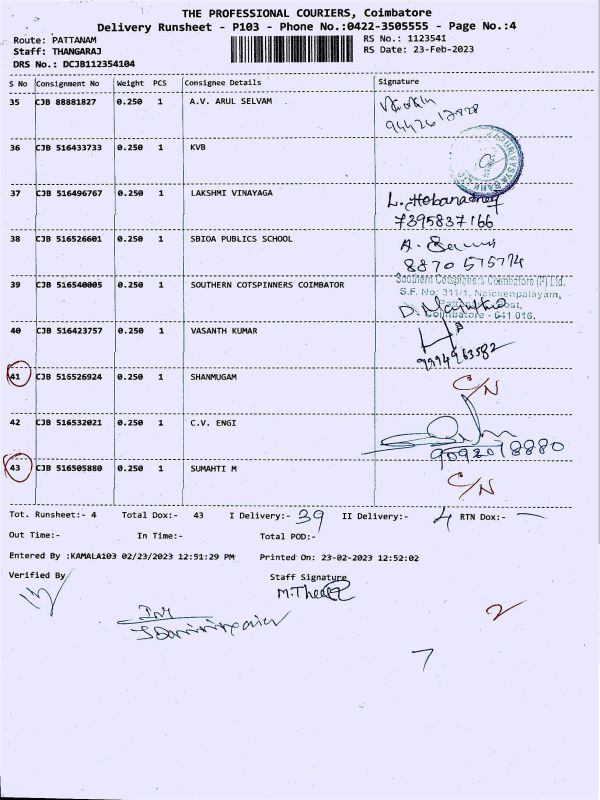 THE PROFESSIONAL COURIERS, Coimbatore
Delivery Runsheet - P103 - Phone No.:0422-3505555 - Page No.:4
Route: PATTANAM RS No.: 1123541
Staff: THANGARAJ RS Date: 23-Feb-2023
DRS No.: DCJB112354104
S No Consignment No Weight PCS Consignee Details Signature
35 CJB 88881827 0.250 1 A.V. ARUL SELVAM
36 CJB 516433733 0.250 1 KVB
37 CJB 516496767 0.250 1 LAKSHMI VINAYAGA
7395837166
38 CJB 516526601 0.250 1 SBIOA PUBLICS SCHOOL
8870 575774
39 CJB 516540005 0.250 1 SOUTHERN COTSPINNERS COIMBATOR
Southern Cotspinners Coimbatore (P) Ltd.
S.F. No: 311/1, Naickenpalayam,
Coimbatore - 641 016.
40 CJB 516423757 0.250 1 VASANTH KUMAR
9994963582
41 CJB 516526924 0.250 1 SHANMUGAM C/N
42 CJB 516532021 0.250 1 C.V. ENGI
9092018880
43 CJB 516505880 0.250 1 SUMAHTI M C/N
Tot. Runsheet:- 4 Total Dox:- 43 I Delivery:- 39 II Delivery:- 4 RTN Dox:- —
Out Time:- In Time:- Total POD:-
Entered By :KAMALA103 02/23/2023 12:51:29 PM Printed On: 23-02-2023 12:52:02
Verified By Staff Signature
2
7